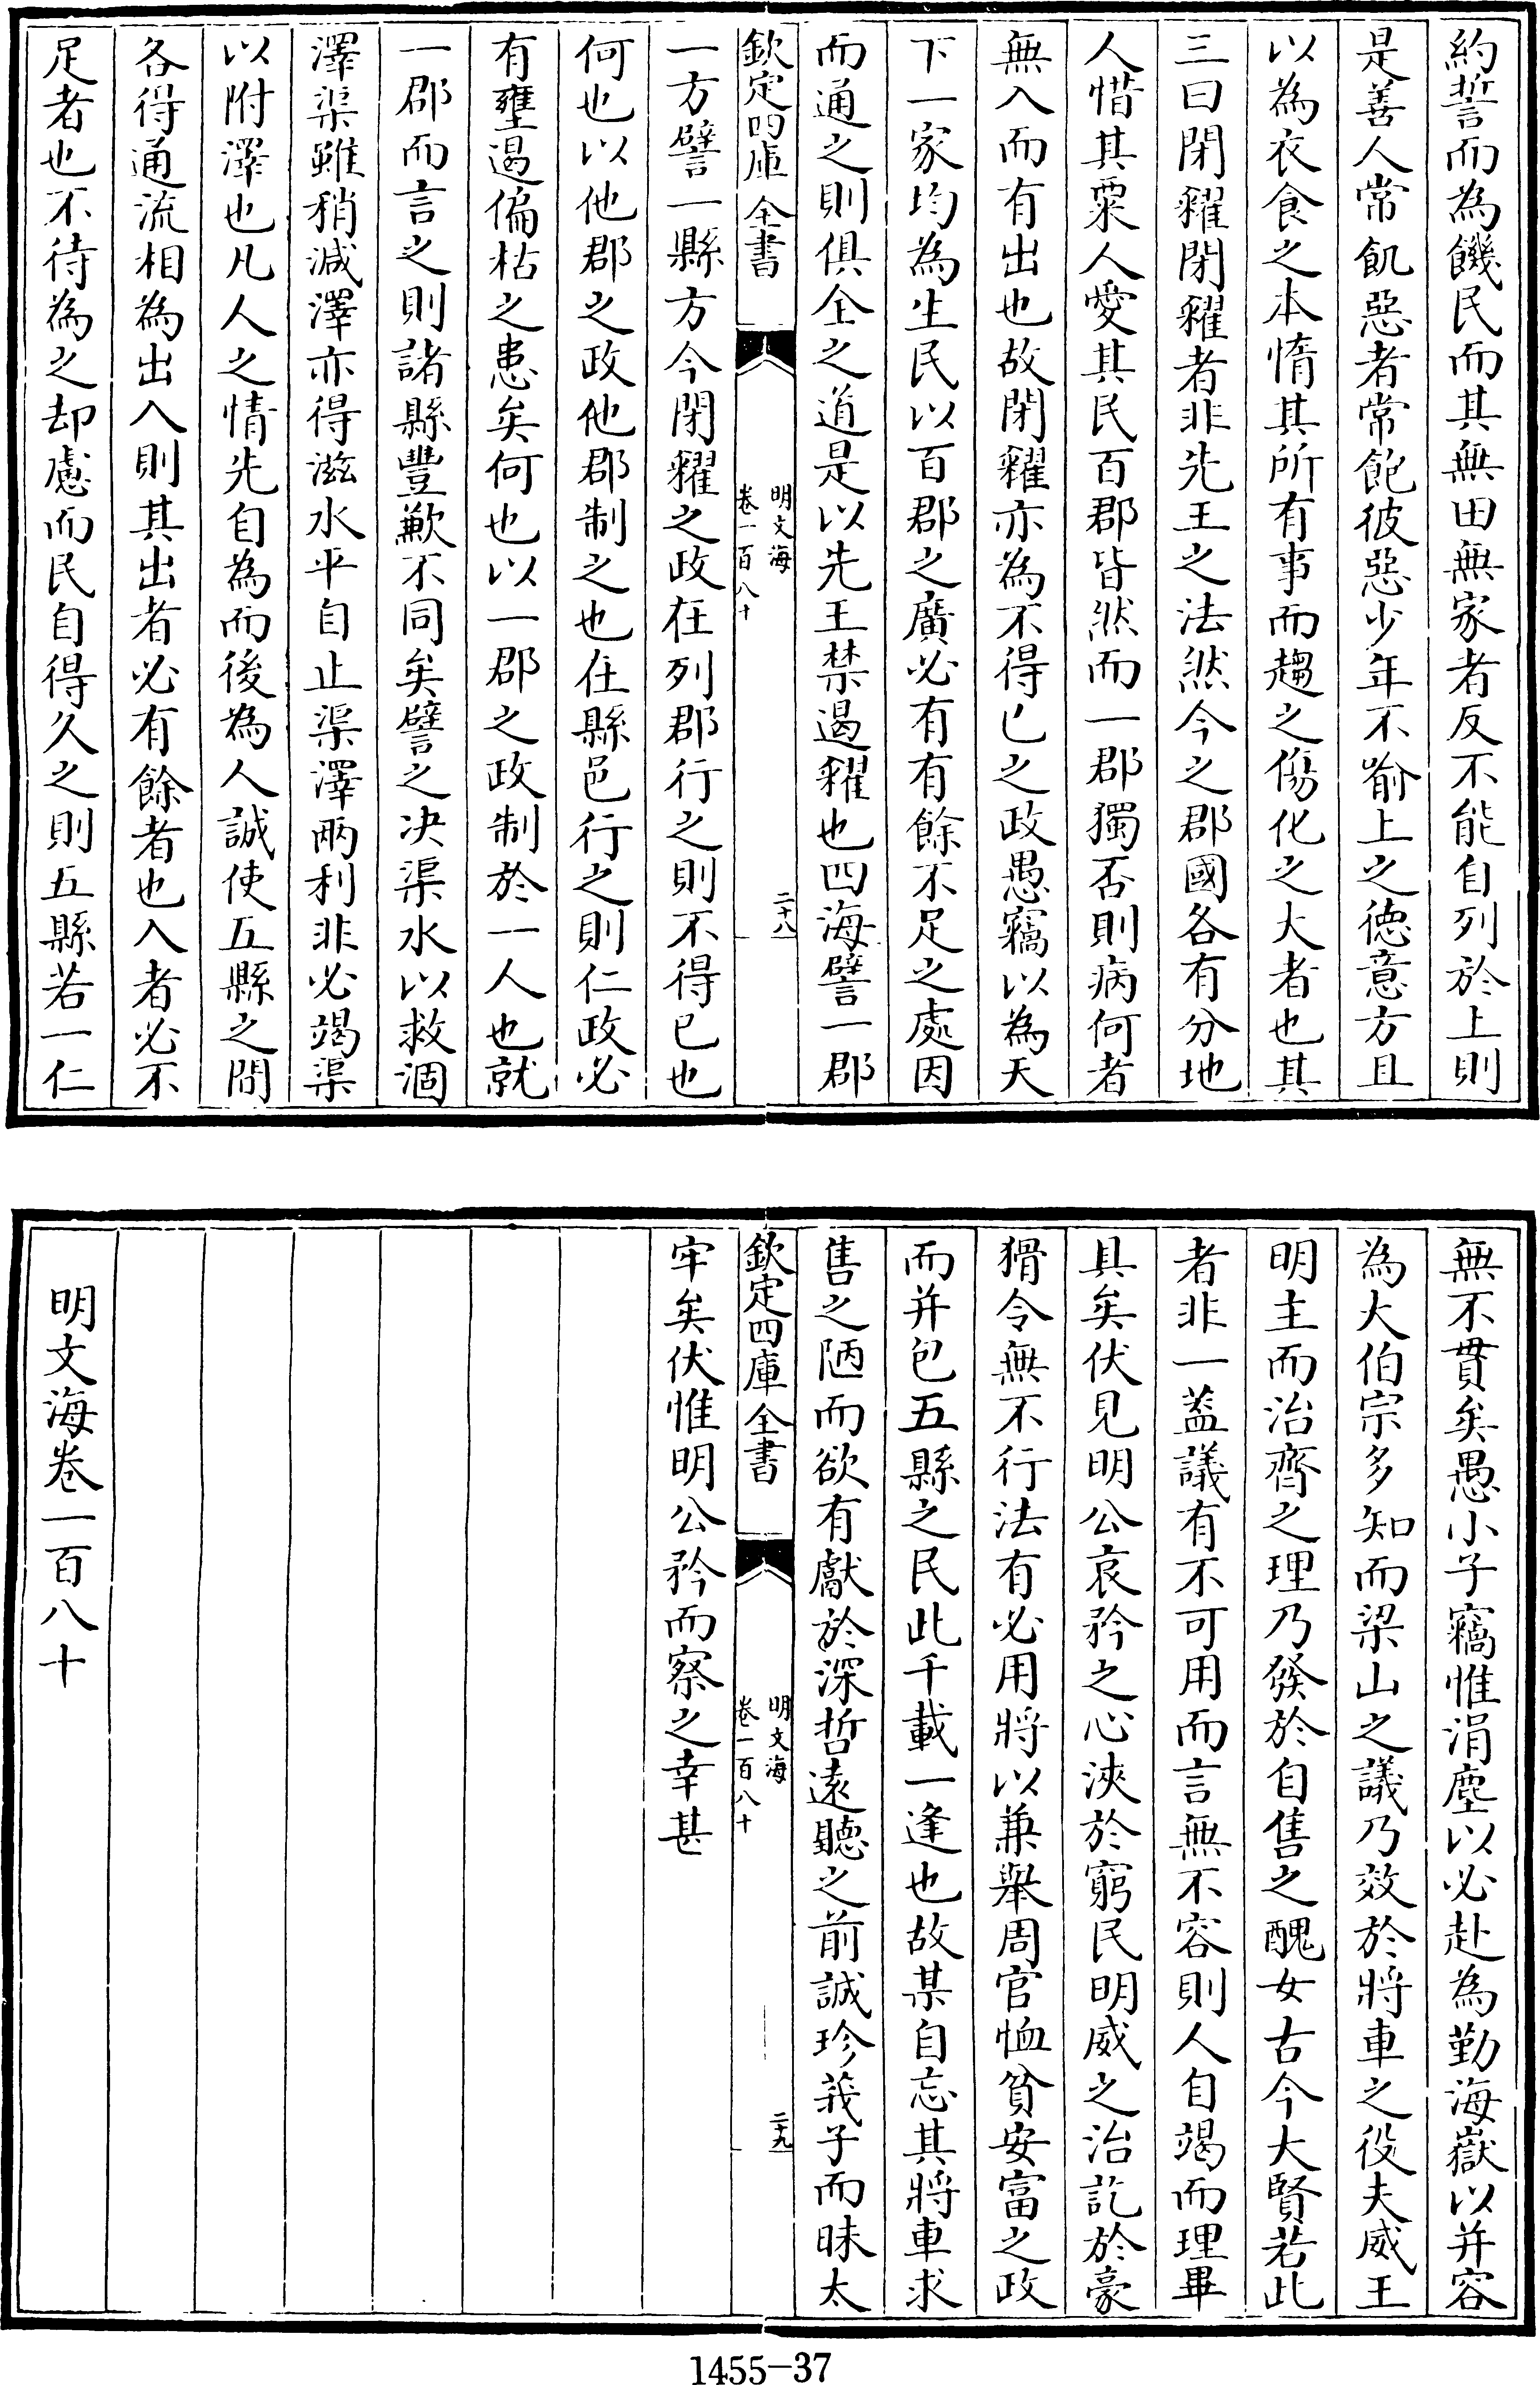 約誓而為饑民而其無田無家者反不能自列於上則
是善人常飢惡者常飽彼惡少年不喻上之徳意方且
以為衣食之本惰其所有事而趨之傷化之大者也其
三曰閉糴閉糴者非先王之法然今之郡國各有分地
人惜其粟人愛其民百郡皆然而一郡獨否則病何者
無入而有出也故閉糴亦為不得已之政愚竊以為天
下一家均為生民以百郡之廣必有有餘不足之處因
而通之則俱全之道是以先王禁遏糴也四海譬一郡
欽定四庫全書
明文海
卷一百八十
二十八
一方譬一縣方今閉糴之政在列郡行之則不得已也
何也以他郡之政他郡制之也在縣邑行之則仁政必
有壅遏偏枯之患矣何也以一郡之政制於一人也就
一郡而言之則諸縣豐歉不同矣譬之决渠水以救涸
澤渠雖稍減澤亦得滋水平自止渠澤兩利非必竭渠
以附澤也凡人之情先自為而後為人誠使五縣之間
各得通流相為出入則其出者必有餘者也入者必不
足者也不待為之却慮而民自得久之則五縣若一仁
無不貫矣愚小子竊惟涓塵以必赴為勤海嶽以并容
為大伯宗多知而梁山之議乃效於將車之役夫威王
明主而治齊之理乃發於自售之醜女古今大賢若此
者非一葢議有不可用而言無不容則人自竭而理畢
具矣伏見明公哀矜之心浹於窮民明威之治訖於豪
猾令無不行法有必用將以兼舉周官恤貧安富之政
而并包五縣之民此千載一逢也故某自忘其將車求
售之陋而欲有獻於深哲遠聽之前誠珍莪子而昧太
欽定四庫全書
明文海
卷一百八十
二十九
牢矣伏惟明公矜而察之幸甚
明文海卷一百八十
1455-37